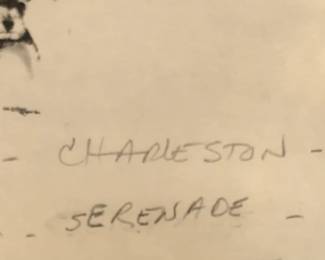 - CHARLESTON -
- SERENADE -